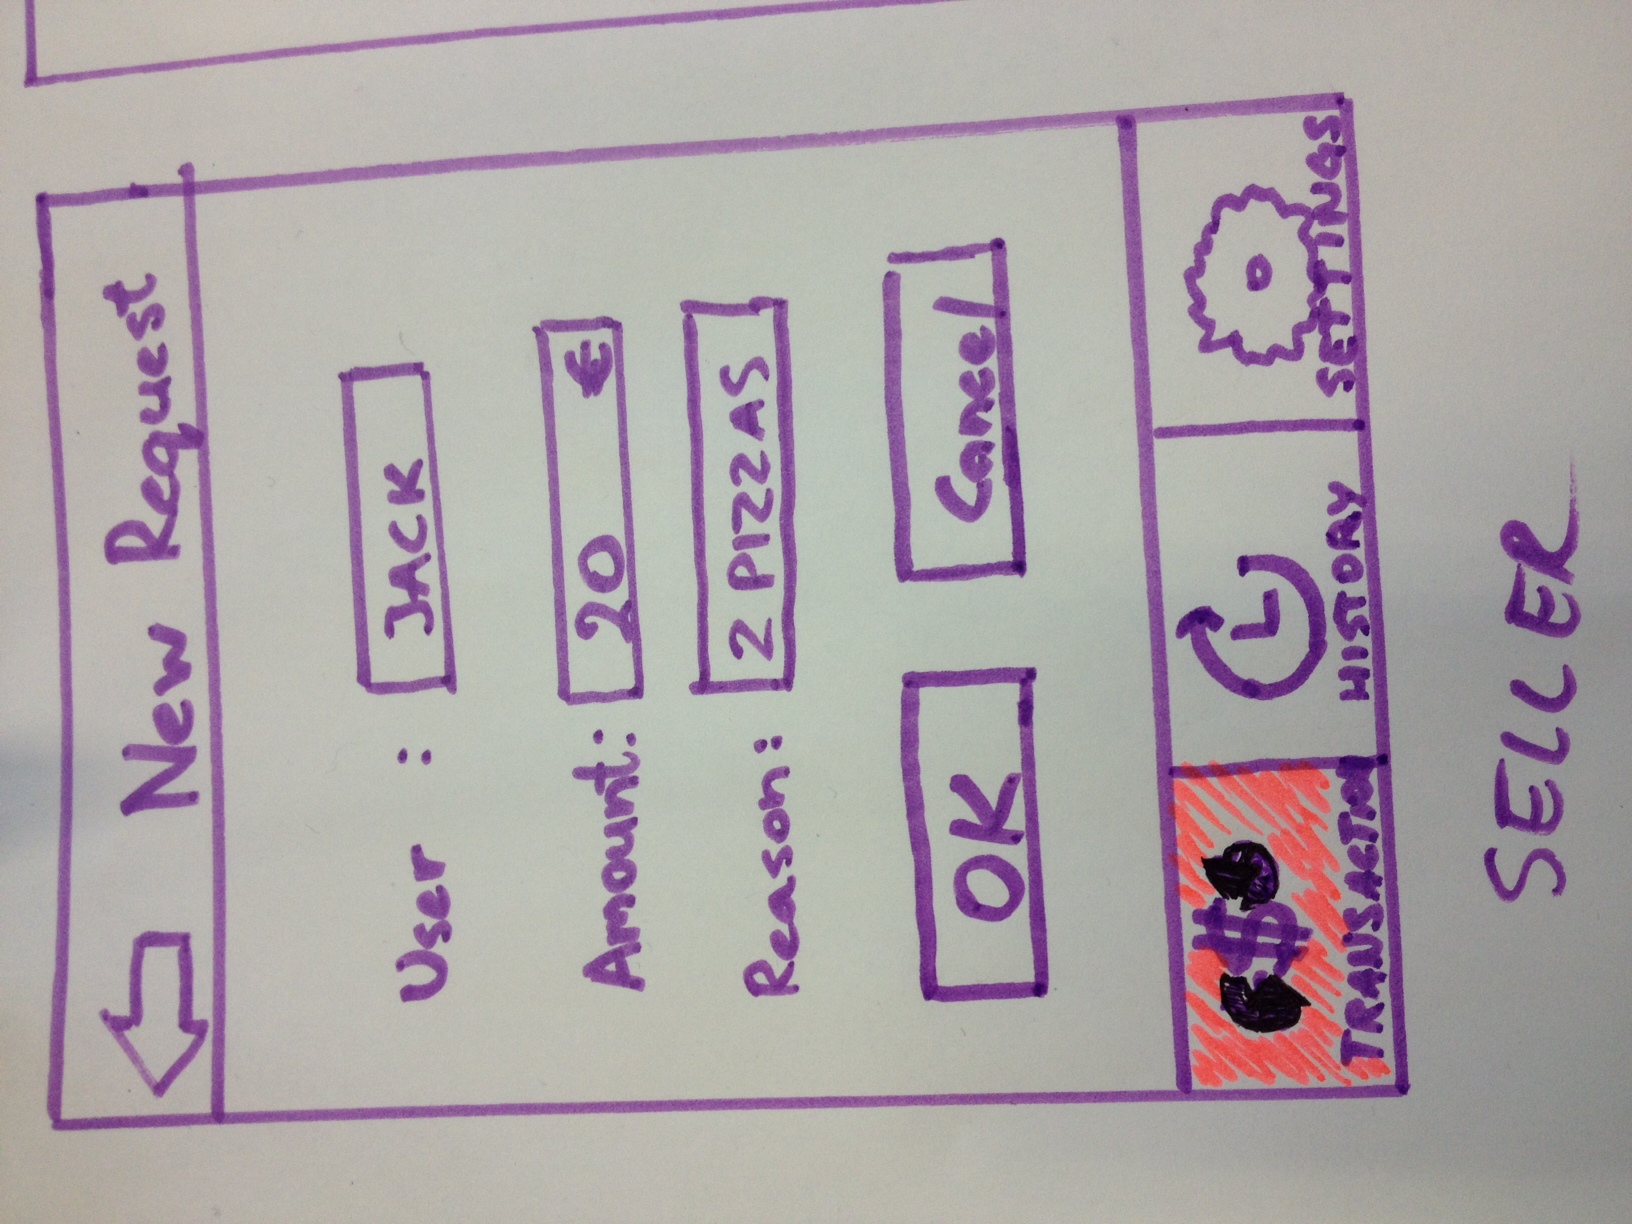 New Request
User : JACK
Amount: 20 €
Reason: 2 PIZZAS
OK Cancel
$
TRANSACTION HISTORY SETTINGS
SELLER